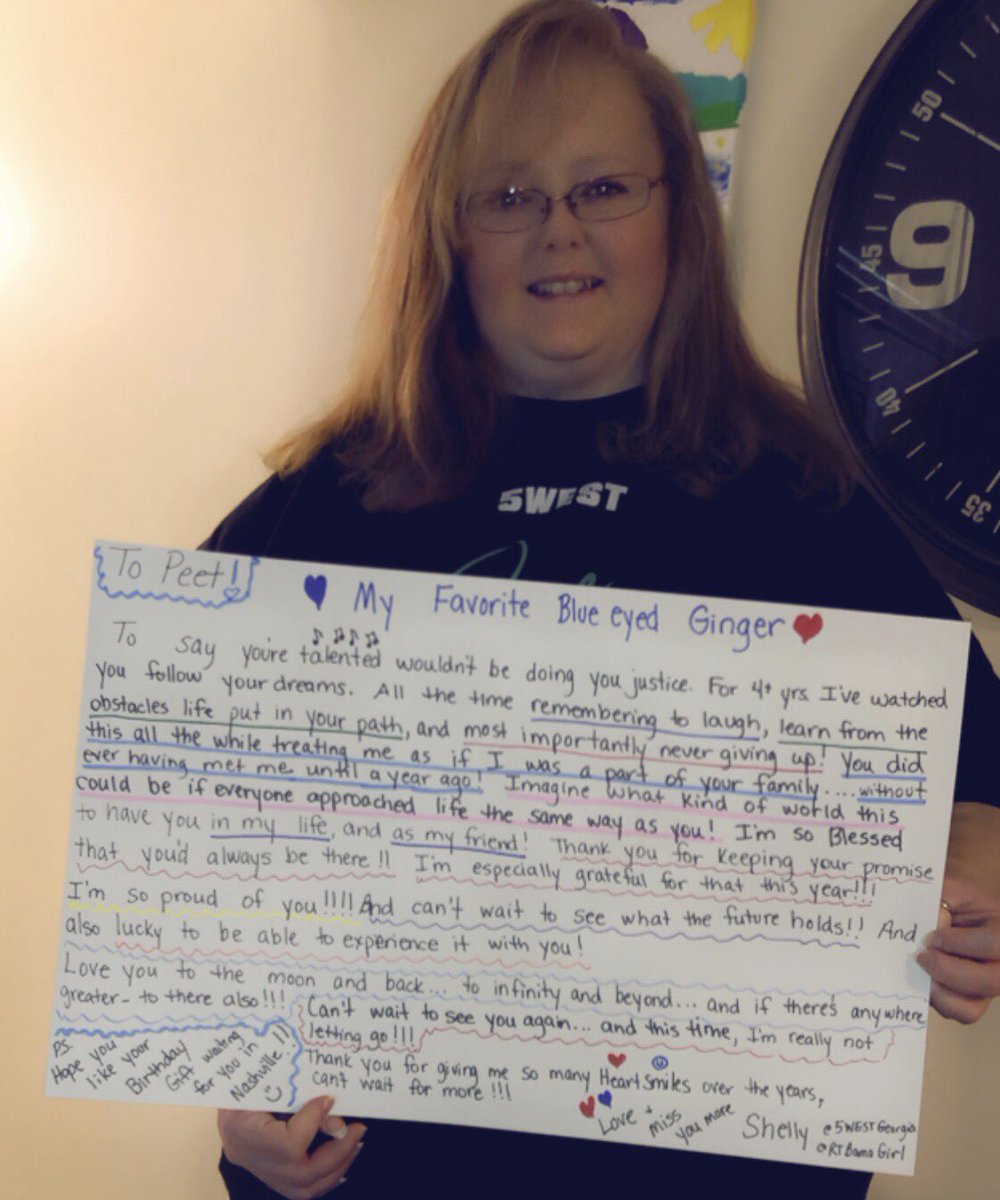 50
9
45
40
35
5WEST
To Peet!
My Favorite Blue eyed Ginger
To say you're talented wouldn't be doing you justice. For 4+ yrs. I've watched
you follow your dreams. All the time remembering to laugh, learn from the
obstacles life put in your path, and most importantly never giving up! You did
this all the while treating me as if I was a part of your family.... without
ever having met me until a year ago! Imagine what kind of world this
could be if everyone approached life the same way as you! I'm so Blessed
to have you in my life, and as my friend! Thank you for keeping your promise
that you'd always be there!! I'm especially grateful for that this year!!!
I'm so proud of you!!!! And can't wait to see what the future holds!! And
also lucky to be able to experience it with you!
Love you to the moon and back... to infinity and beyond... and if there's anywhere
greater- to there also!!!
Can't wait to see you again... and this time, I'm really not
letting go!!!
Thank you for giving me so many Heart Smiles over the years,
can't wait for more!!!
P.S.
Hope you
like your
Birthday
Gift waiting
for you in
Nashville!!
Love + miss
you more
Shelly
@5WESTGeorgia
@RTBamaGirl